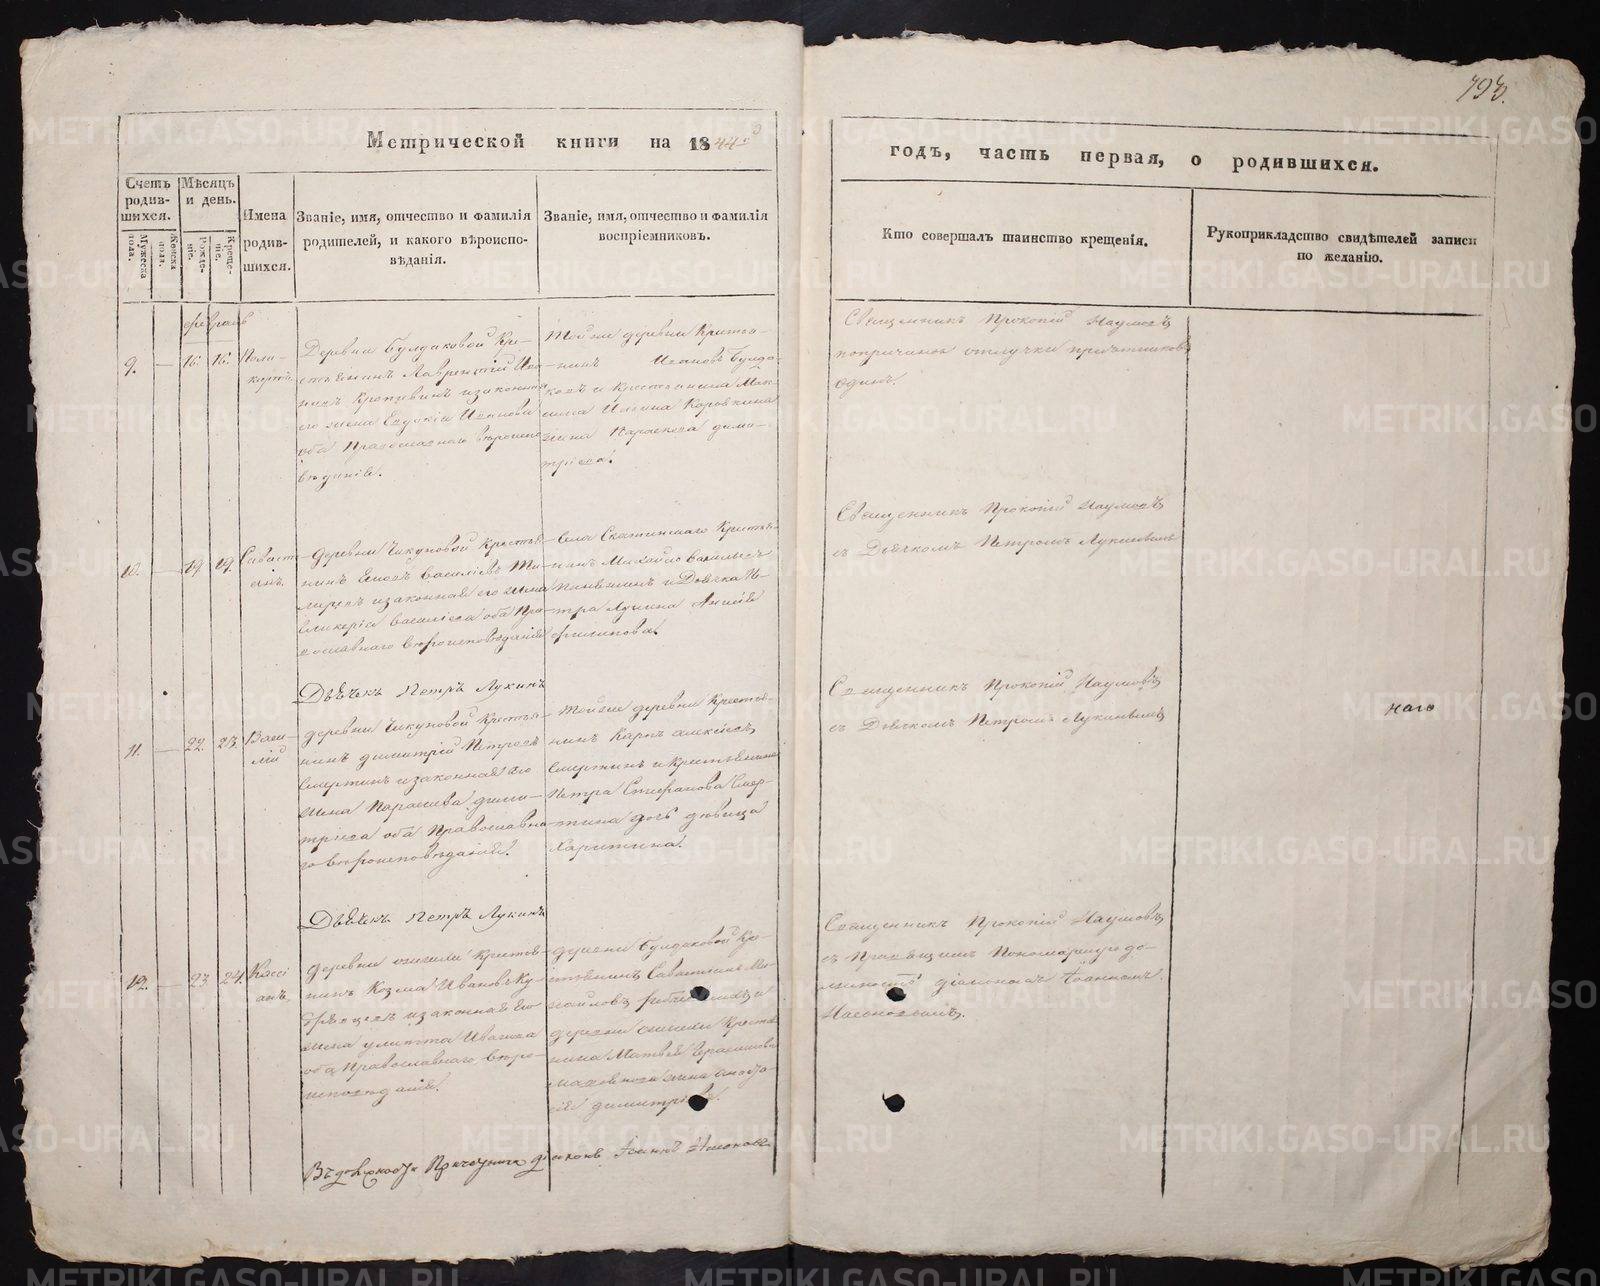 793.
Метрической книги на 1844й
годъ, часть первая, о родившихся.
Счетъ родив-шихся.
Мужеска пола.
Женска пола.
Мѣсяцъ и день.
Рожде-ніе.
Креще-ніе.
Имена родив-шихся.
Званіе, имя, отчество и фамилія
родителей, и какого вѣроиспо-
вѣданія.
Званіе, имя, отчество и фамилія
воспріемниковъ.
Кто совершалъ таинство крещенія.
Рукоприкладство свидѣтелей записи
по желанію.
февраль
9. — 16. 16. Поли-
карпъ
Деревни Булдаковой Кре-
стьянинъ Лаврентій Ива-
новъ и законная
его жена Евдокія Иванова
оба Православнаго вѣроиспо
вѣданія.
Той же деревни Крестья-
нинъ Ивановъ Булда-
ковъ и Крестьянина
Ильина Коровкина
жена Параскева дими-
тріева.
Священникъ Прокопій Наумовъ
по причинѣ отлучки причетниковъ
одинъ.
10. — 19. 19. Севасті
анъ.
деревни Чикуновой Крестья-
нинъ Василіевъ
и законная его жена
Гликерія Василіева оба Пра-
вославнаго вѣроисповѣданія
Села Скатинскаго Крестья-
нинъ Михайло Васильевъ
и Дьячка Пе-
тра Лукина Анисія
филипова.
Священникъ Прокопій Наумовъ
съ Дьячкомъ Петромъ Лукинымъ
Дьячекъ Петръ Лукинъ
11. — 22. 23. Васи-
лій
деревни Чикуновой Крестья-
нинъ димитрій Петровъ
Смертинъ и законная его
жена Параскева дими-
тріева оба Православна-
го вѣроисповѣданія.
Той же деревни Крестья-
нинъ Карпъ алексѣевъ
Смертинъ и Крестьянина
Петра Стефанова Смер-
тина дочь дѣвица
Харитина.
Священникъ Прокопій Наумовъ
съ Дьячкомъ Петромъ Лукинымъ
наго
Дьячекъ Петръ Лукинъ
12. — 23. 24. Кассі
анъ.
деревни Крестья-
нинъ Козма Ивановъ
и законная его
жена улитта Иванова
оба Православнаго вѣро-
исповѣданія.
деревни Булдаковой Кре-
стьянинъ Савастіянъ Ми-
хайловъ и
деревни Крестья
нина Матвѣя Герасимова
жена анаста-
сія димитріева.
Священникъ Прокопій Наумовъ
съ Правящимъ Пономарскую до-
лжность діакономъ Іоанномъ
Насоновымъ.
Въ должности Причетника діаконъ Іоаннъ
METRIKI.GASO-URAL.RU